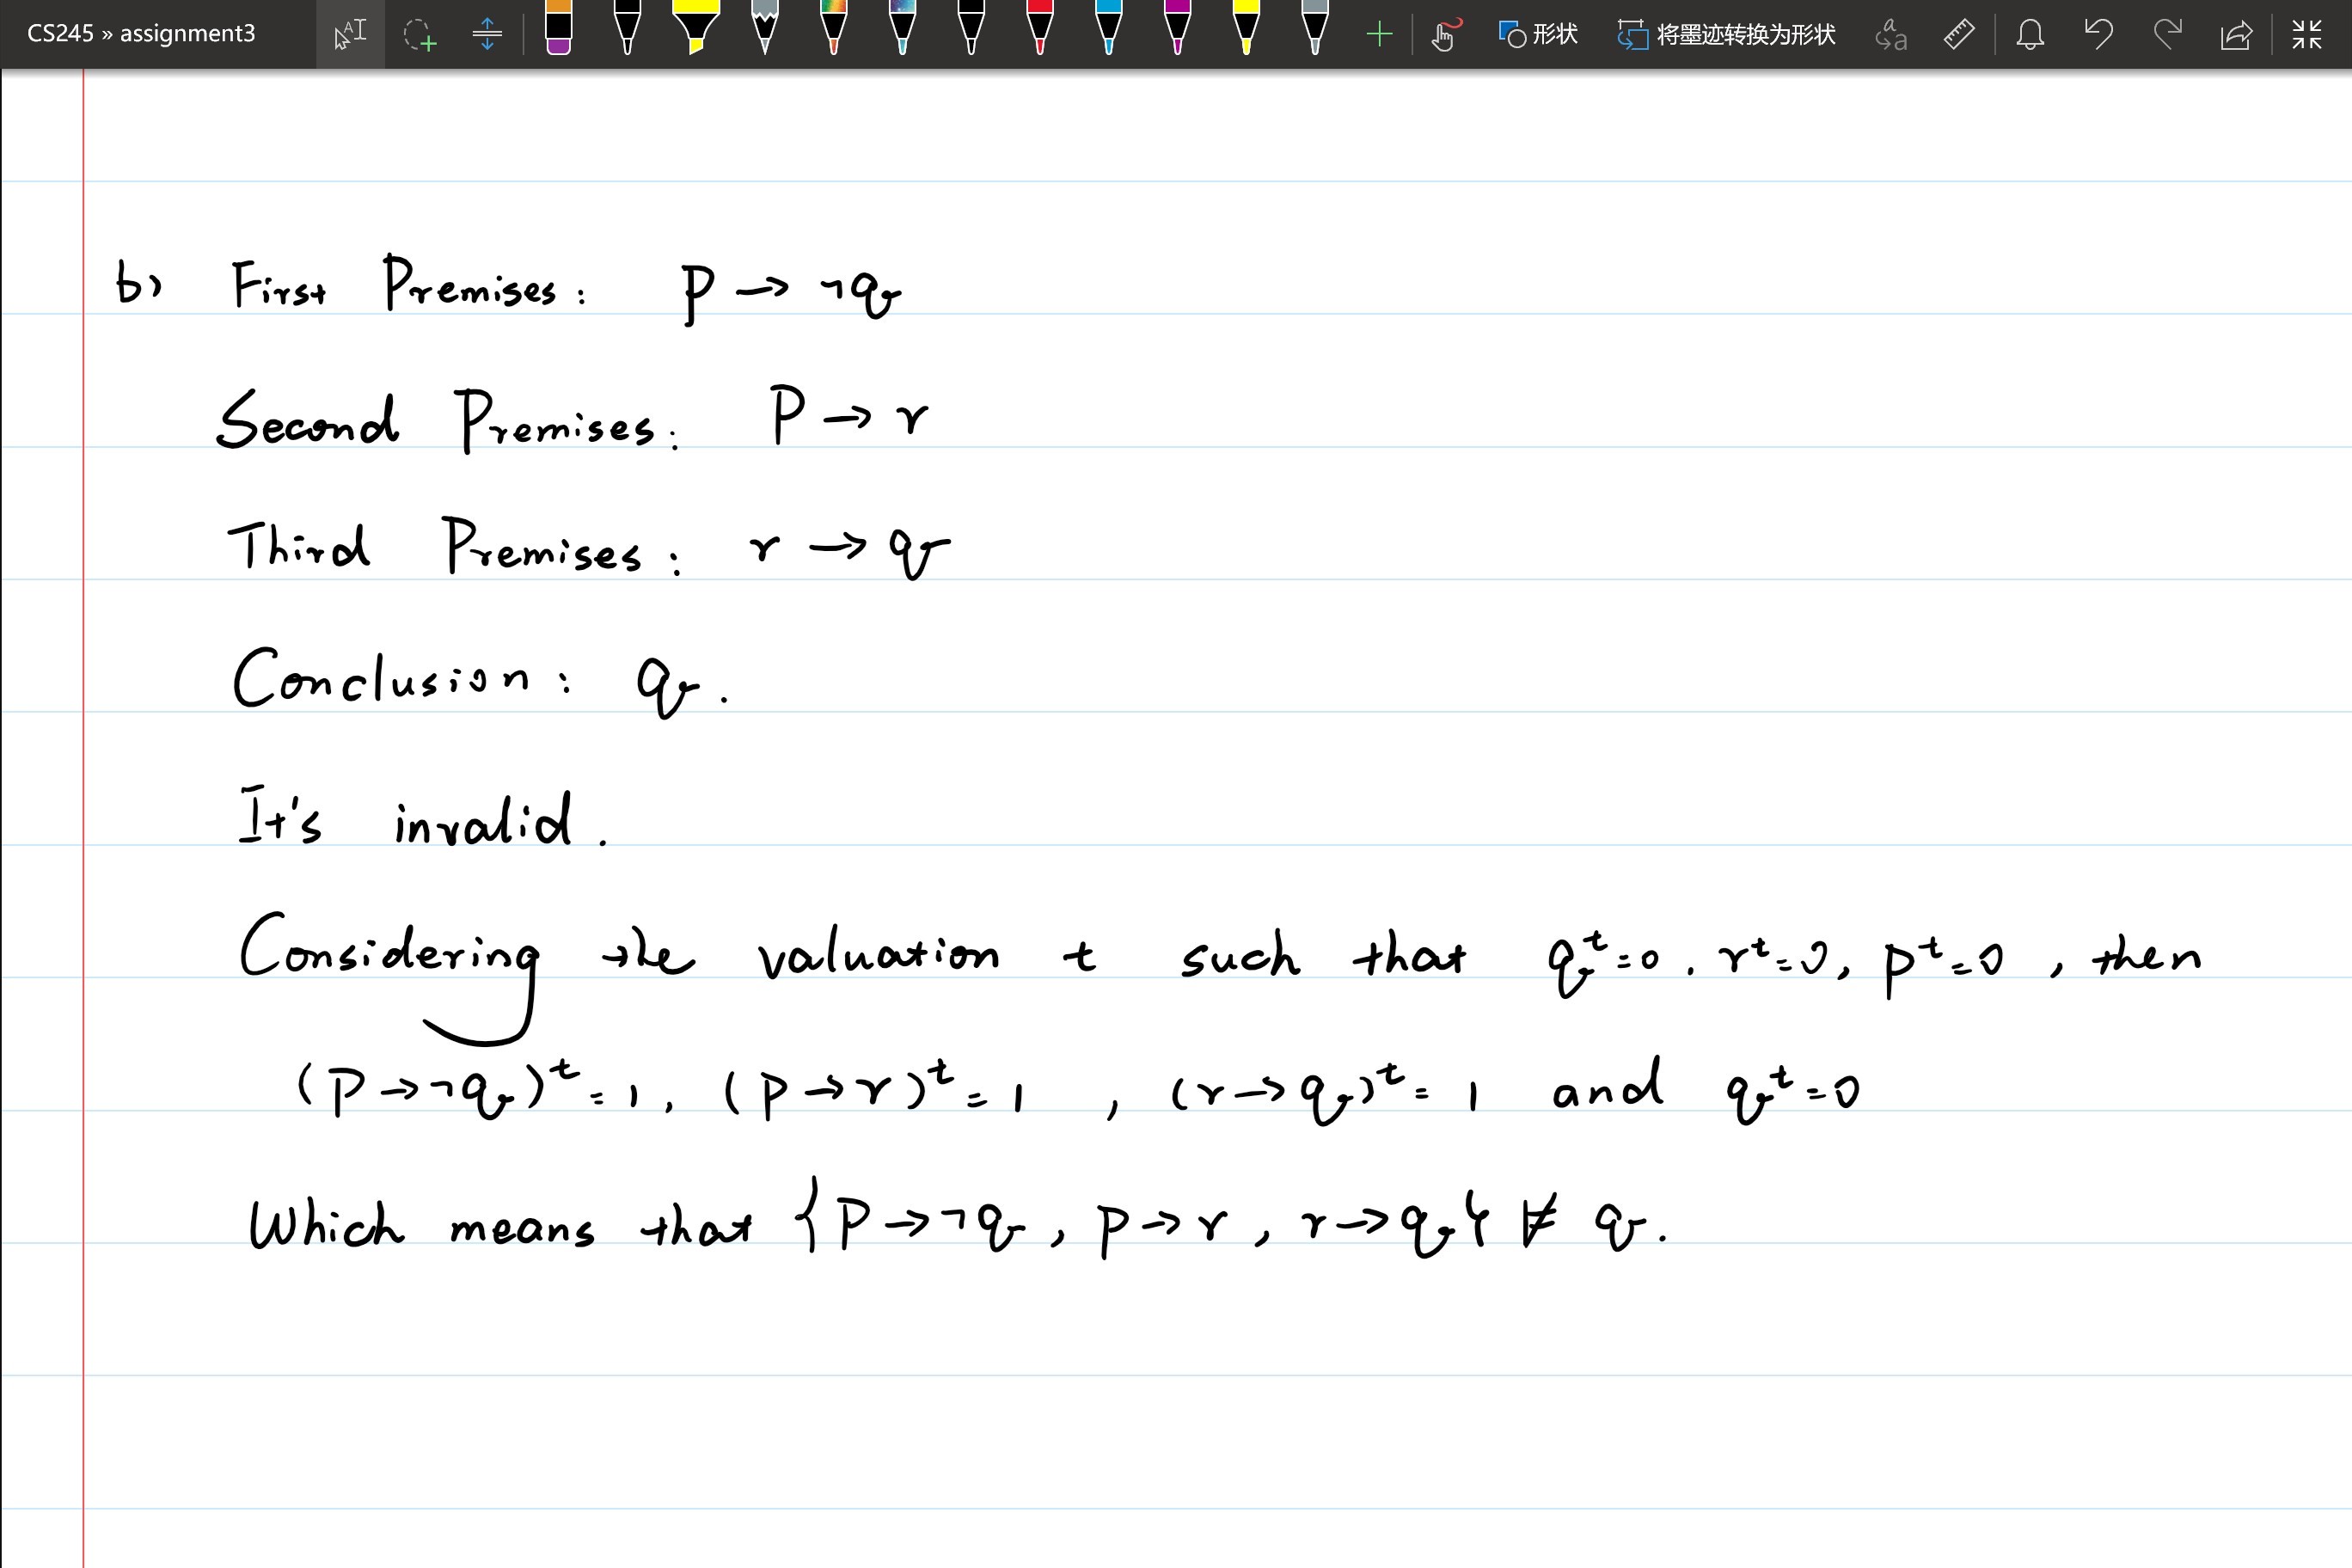 CS245 » assignment3
形状 将墨迹转换为形状
b) First Premises: P → ¬q
Second Premises: P → r
Third Premises: r → q
Conclusion: q.
It's invalid.
Considering the valuation t such that q^t=0. r^t=0, p^t=0, then
(P→¬q)^t=1, (p→r)^t=1, (r→q)^t=1 and q^t=0
Which means that {P→¬q, p→r, r→q} ⊭ q.